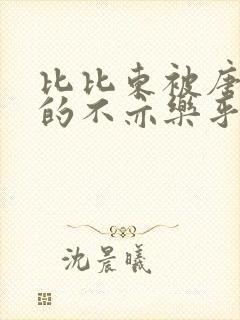 比比东被唐
的不亦乐乎
沈晨曦